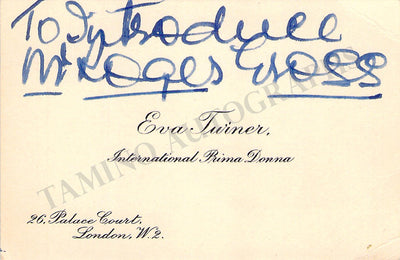 To Introduce
Mr ROGER GROSS
Eva Turner,
International Prima Donna
TAMINO AUTOGRAPHS
26, Palace Court,
London, W.2.